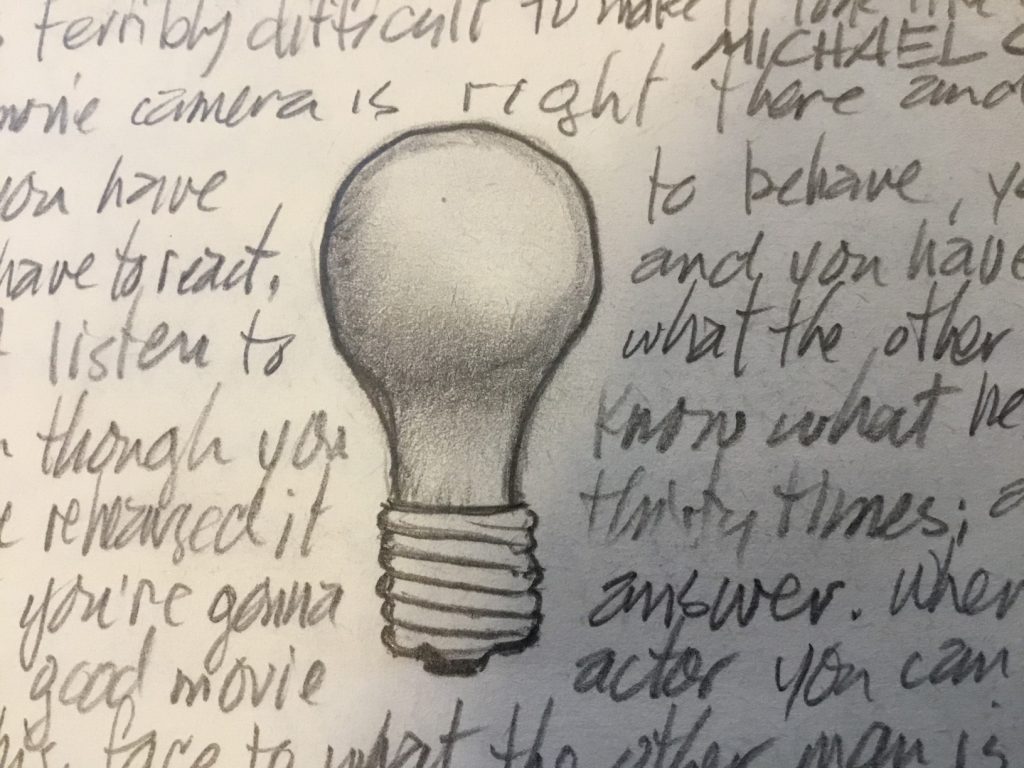 terribly difficult to make it look
MICHAEL
movie camera is right there and
you have to behave,
have to react, and you have
listen to what the other
though you know what he
rehearsed it thirty times;
you're gonna answer. when
good movie actor you can
face to what the other man is